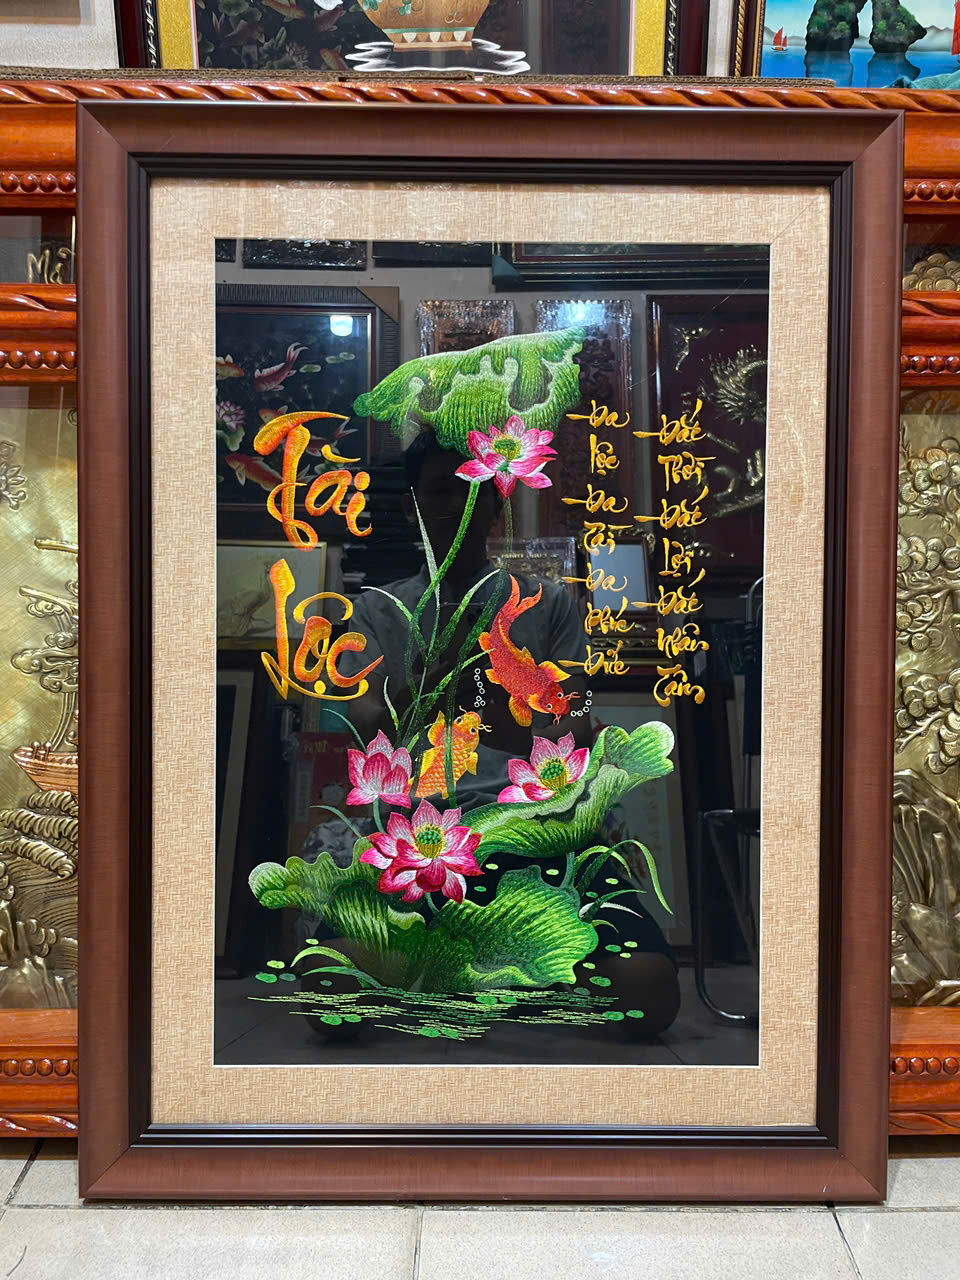 Tài
Lộc
Đắc
Thời
Đắc
Lợi
Đắc
Nhân
Tâm
Đa
Lộc
Đa
Tài
Đa
Phúc
Đức